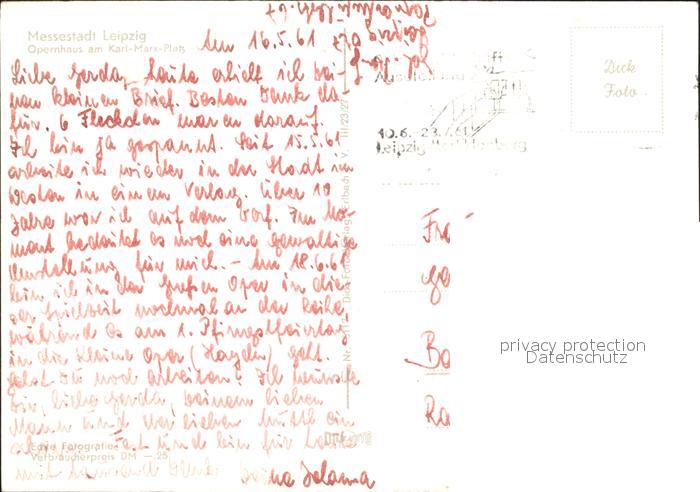 Messestadt Leipzig
Opernhaus am Karl-Marx-Platz
Am 16.5.61
Liebe Gerda, heute erhielt ich dei-
nen kleinen Brief. Besten Dank da-
für. 6 Fleckchen waren darauf.
Ich bin ja gespannt. Seit 15.5.61
arbeite ich wieder in der Stadt im
Westen in einem Verlag. Über 10
Jahre war ich auf dem Dorf. Im Mo-
ment bedeutet es noch eine gewaltige
Umstellung für mich. – Am 18.6.61
bin ich in der großen Oper in die-
ser Spielzeit nochmal an der Reihe,
während es am 1. Pfingstfeiertag
in die kleine Oper (Haydn) geht.
Gehst Du noch arbeiten? Ich wünsche
Dir, liebe Gerda, Deinem lieben
Mann und der lieben Mutti ein
Fest und bin für heute
mit tausend
Echte Fotografie
Verbraucherpreis DM —.25
10.6.-23.7.61
Leipzig
III/23/27
Dick
Foto
Fr
Ge
Ba
Ra
privacy protection
Datenschutz